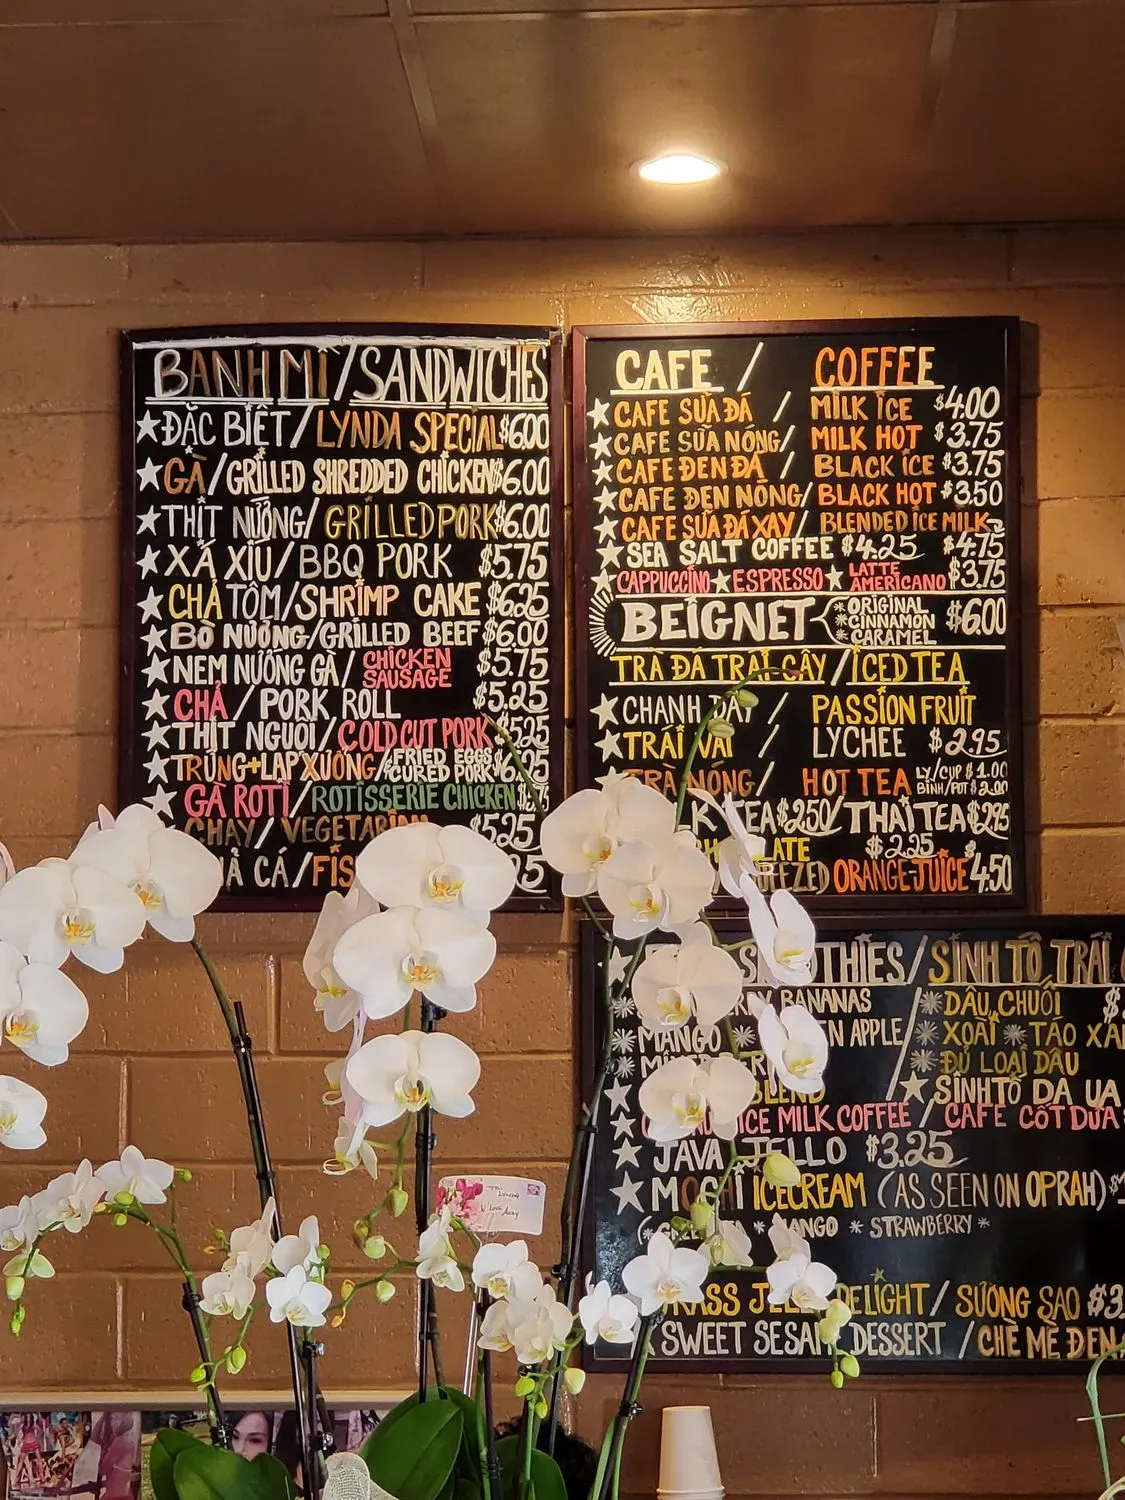 BANH MI / SANDWICHES
ĐẶC BIỆT / LYNDA SPECIAL $6.00
GÀ / GRILLED SHREDDED CHICKEN $6.00
THỊT NƯỚNG / GRILLED PORK $6.00
XÁ XÍU / BBQ PORK $5.75
CHẢ TÔM / SHRIMP CAKE $6.25
BÒ NƯỚNG / GRILLED BEEF $6.00
NEM NƯỚNG GÀ / CHICKEN SAUSAGE $5.75
CHẢ / PORK ROLL $5.25
THỊT NGUỘI / COLD CUT PORK 5.25
TRỨNG + LẠP XƯỞNG / FRIED EGGS CURED PORK
GÀ ROTI / ROTISSERIE CHICKEN
CHAY / VEGETARIAN $5.25
CÁ /
CAFE / COFFEE
CAFE SỮA ĐÁ / MILK ICE $4.00
CAFE SỮA NÓNG / MILK HOT $3.75
CAFE ĐEN ĐÁ / BLACK ICE $3.75
CAFE ĐEN NÓNG / BLACK HOT $3.50
CAFE SỮA ĐÁ XAY / BLENDED ICE MILK $4.75
SEA SALT COFFEE $4.25
CAPPUCCINO ESPRESSO LATTE AMERICANO $3.75
BEIGNET * ORIGINAL * CINNAMON * CARAMEL $6.00
TRÀ ĐÁ TRÁI CÂY / ICED TEA
CHANH DÂY / PASSION FRUIT
TRÁI VẢI / LYCHEE $2.95
TRÀ NÓNG / HOT TEA LY/CUP $1.00 BÌNH/POT $2.00
TEA $2.50 / THAI TEA $2.95
$2.25
ORANGE JUICE 4.50
SMOOTHIES / SINH TỐ TRÁI
BANANAS / * DÂU, CHUỐI
* MANGO APPLE * XOÀI * TÁO
* ĐỦ LOẠI DÂU
BLEND SINH TỐ DA UA
ICE MILK COFFEE / CAFE CỐT DỪA
JAVA JELLO $3.25
MOCHI ICECREAM (AS SEEN ON OPRAH)
MANGO * STRAWBERRY *
DELIGHT / SƯƠNG SÁO
SWEET SESAME DESSERT / CHÈ MÈ ĐEN